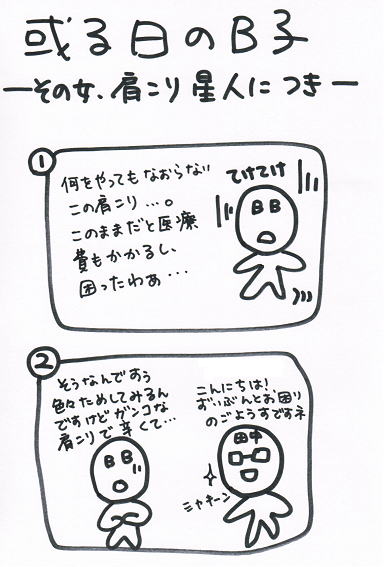 或る日のB子
ーその女、肩こり星人につきー
1
何をやってもなおらない
この肩こり…。
このままだと医療
費もかかるし、
困ったわぁ…
てけてけ
BB
2
こんにちは!
ずいぶんとお困り
のごようすですネ
田中
シャキーン
そうなんですぅ
色々ためしてみるん
ですけどガンコな
肩こりで辛くて…
BB